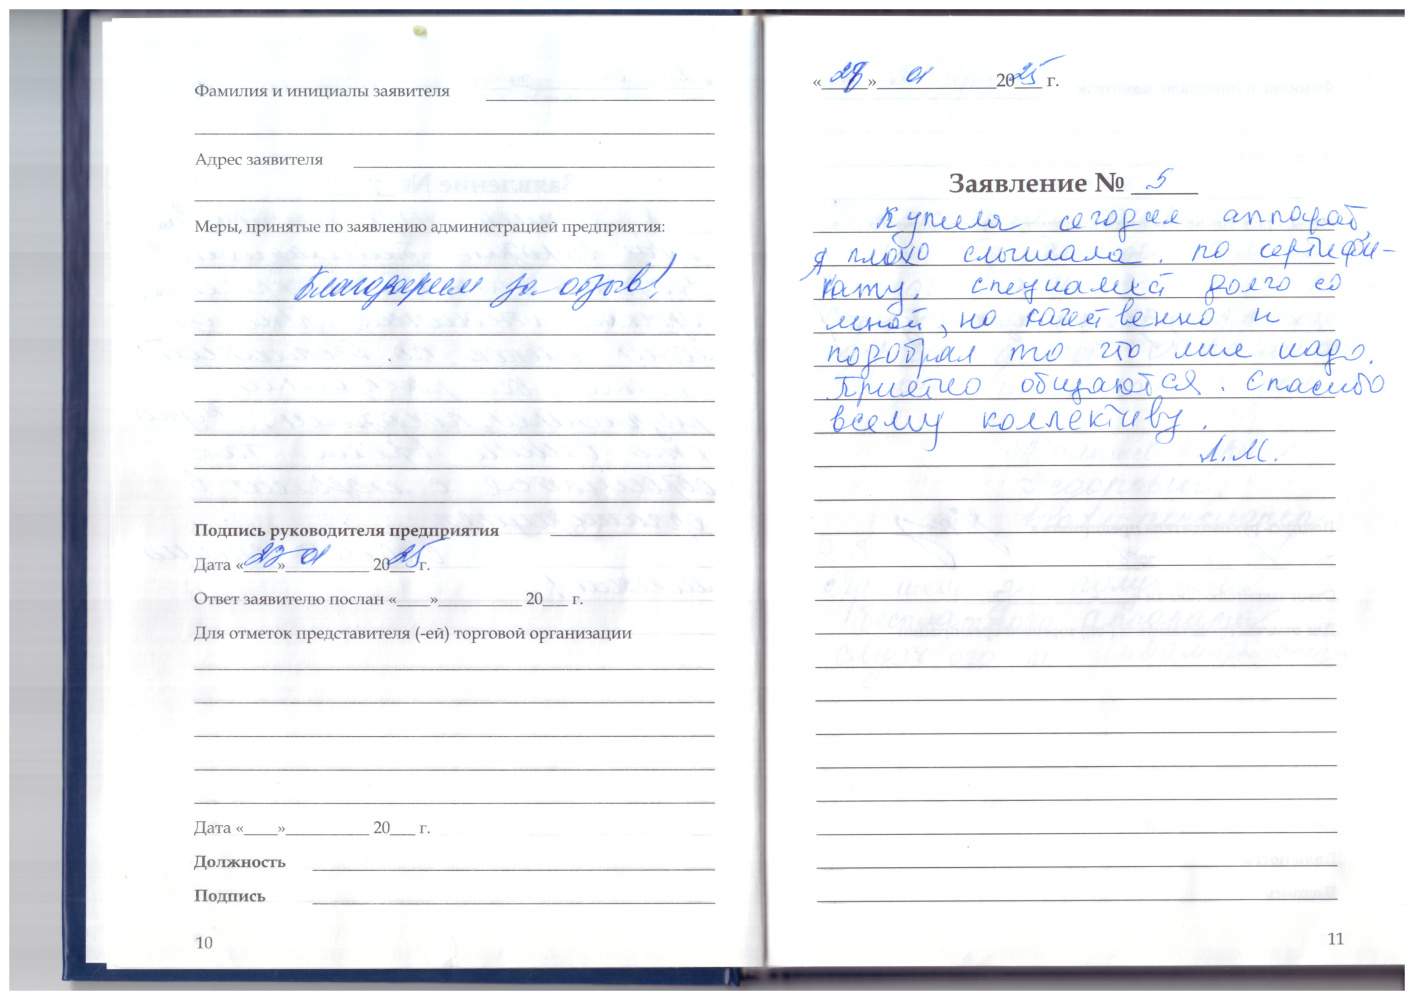 Фамилия и инициалы заявителя
Адрес заявителя
Меры, принятые по заявлению администрацией предприятия:
Благодарим за отзыв!
Подпись руководителя предприятия
Дата «23» 01 2025 г.
Ответ заявителю послан «____»__________ 20___ г.
Для отметок представителя (-ей) торговой организации
Дата «____»__________ 20___ г.
Должность
Подпись
10
« » 01 2025 г.
Заявление № 5
Купила сегодня аппарат,
я плохо слышала. по сертифи-
кату. специалист долго со
мной, но качественно и
подобрал то что мне надо.
Приятно общаются. Спасибо
всему коллективу.
Л.М.
11